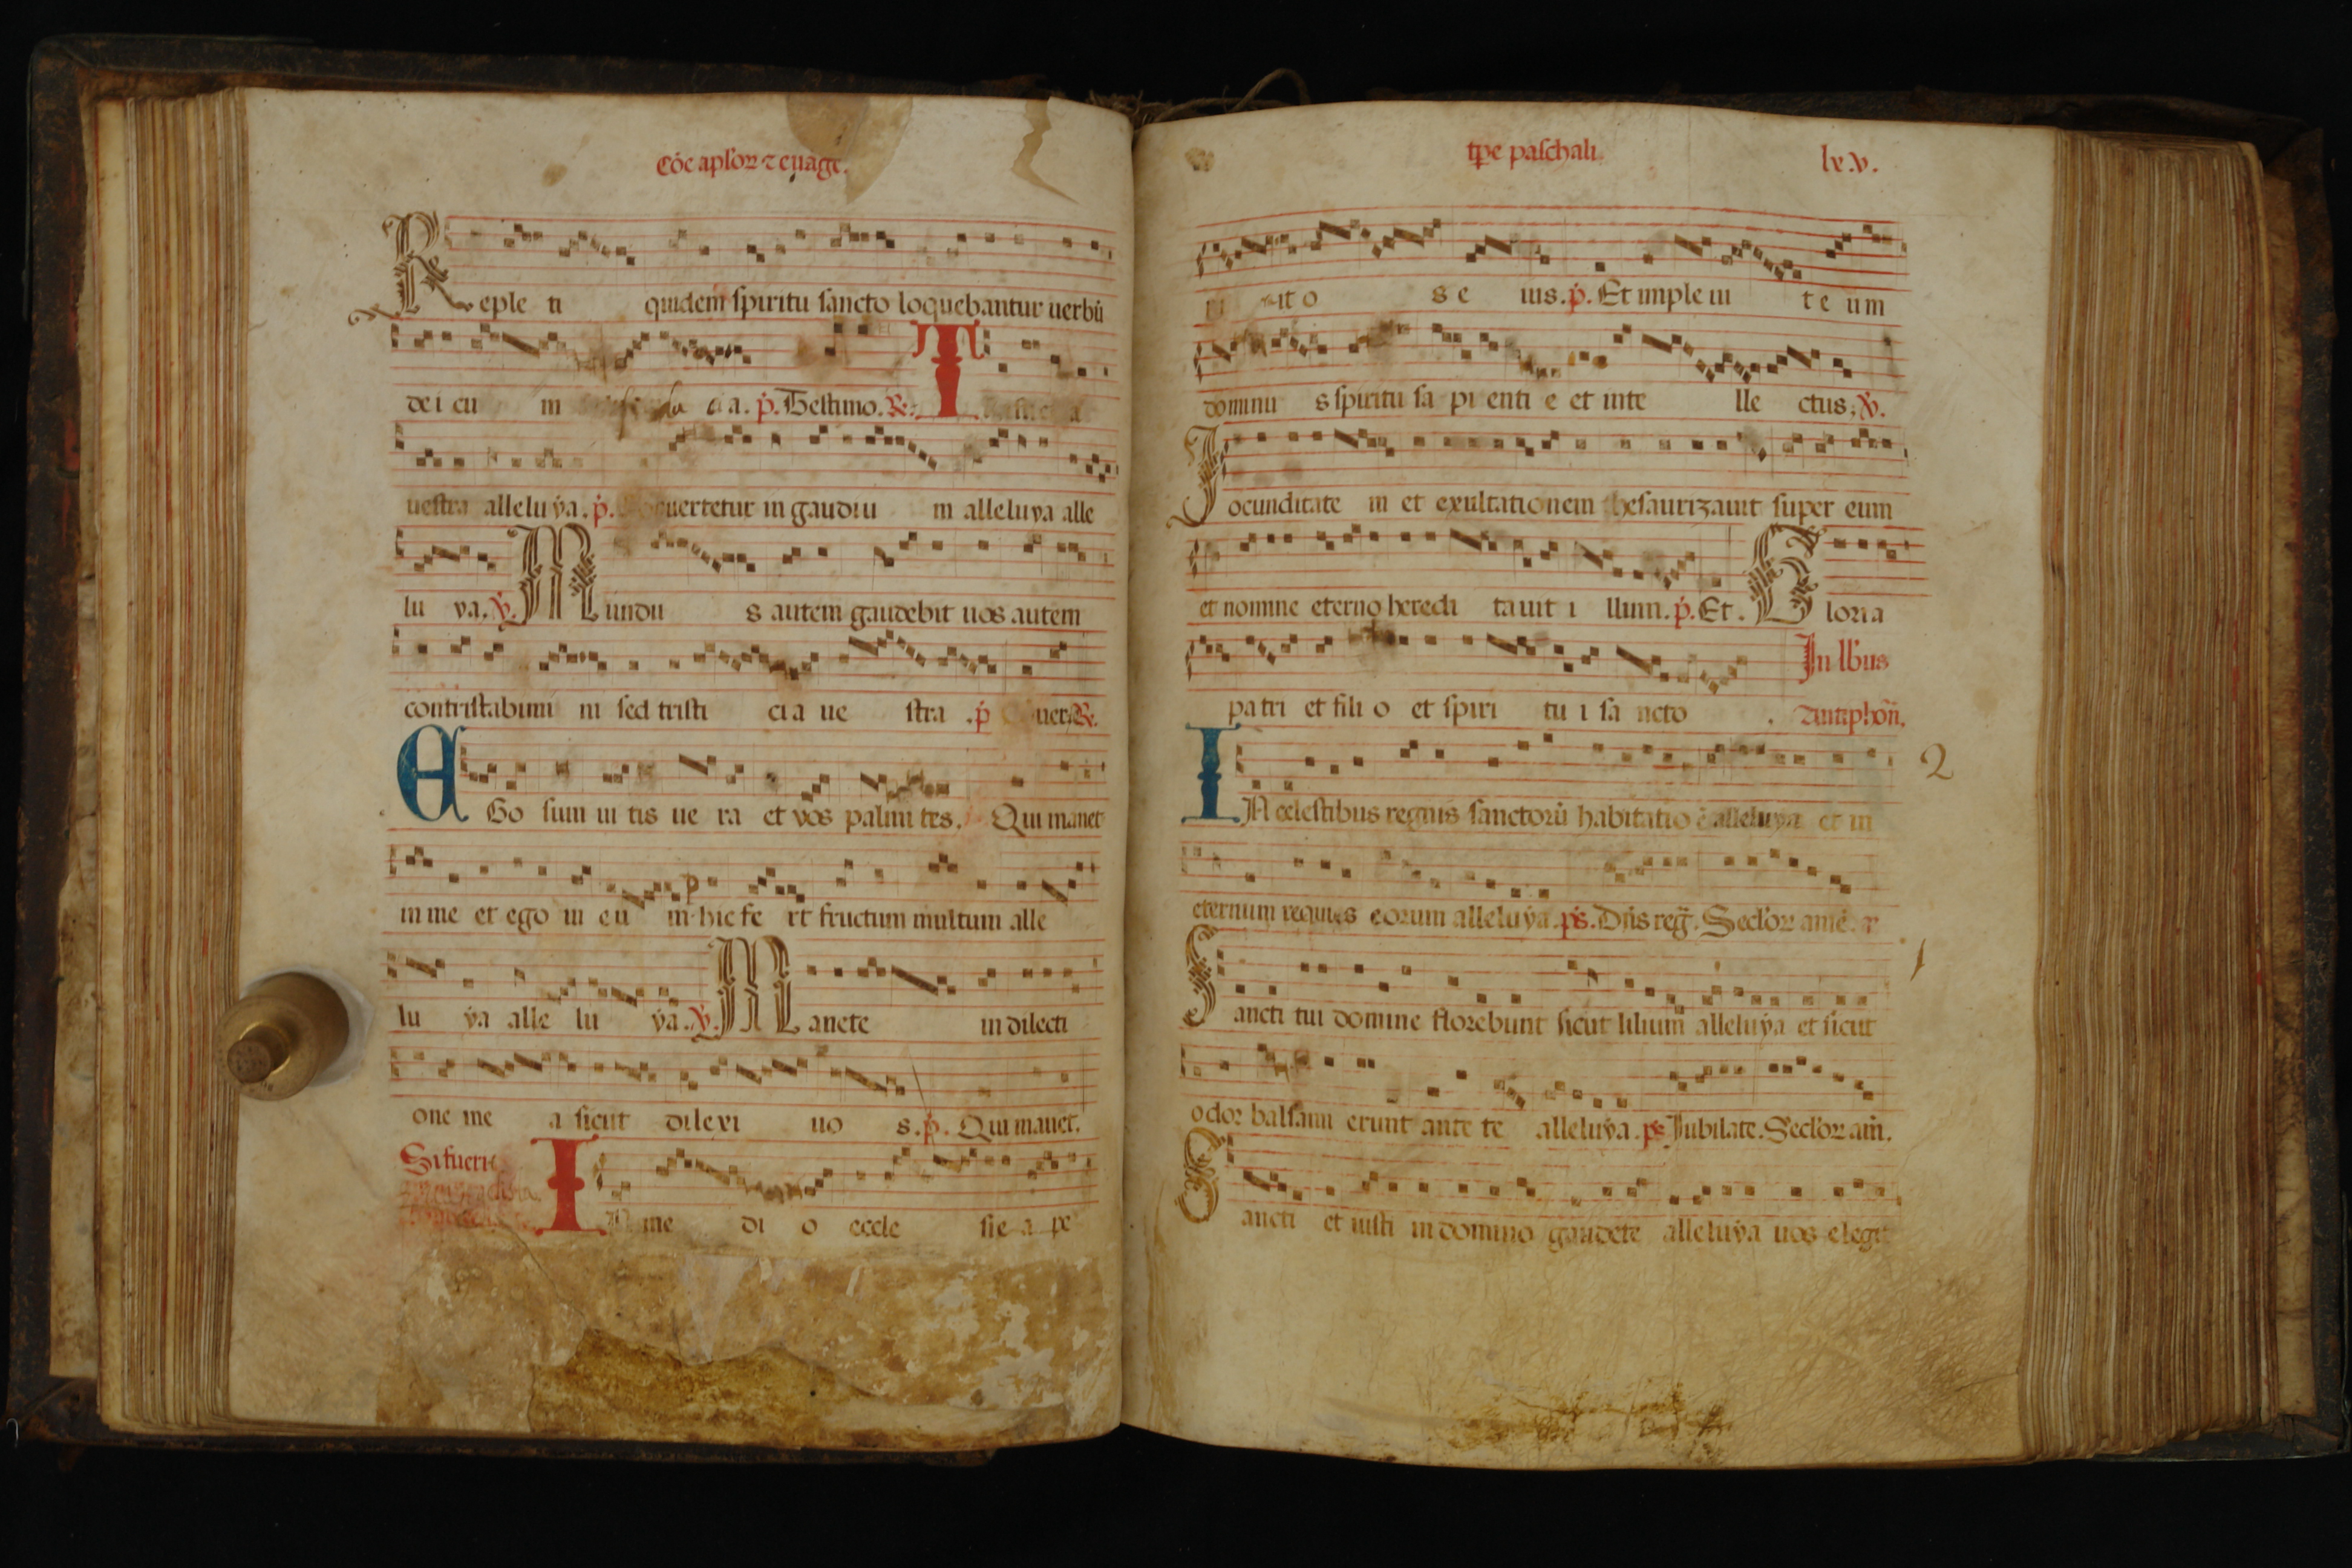 Cōe apl'oꝝ ⁊ euāge.
Reple ti quidem spiritu sancto loquebantur uerbū
dei cu m cia. p̄. Testimo. ℟.
T
uestra alleluya. p̄. uertetur in gaudiu m alleluya alle
lu ya. ℣. Mundu s autem gaudebit uos autem
contristabimi ni sed tristi cia ue stra . p̄ uert ℟.
EGo sum ui tis ue ra et vos palmi tes. Qui manet
in me et ego in eu m hic fe rt fructum multum alle
lu ya alle lu ya. ℣. Manete in dilecti
one me a sicut dilexi uo s. p̄. Qui manet.
Si fuerit
IN me di o eccle sie a pe
tp̄e paschali
lxv.
it o s e ius. p̄. Et imple ui t e um
dominu s spiritu sa pi enti e et inte lle ctus. ℣.
Jocunditate m et exultationem thesaurizauit super eum
et nomine eterno heredi tauit i llum. p̄. Et. Gloria
patri et fili o et spiri tu i sa ncto . In lb'us
antiphon̄.
IN celestibus regnis sanctorū habitatio ē alleluya et in
2
eternum requies eorum alleluya. ps̄. Dn̄s reḡ. Secl'oꝝ amē. a
Sancti tui domine florebunt sicut lilium alleluya et sicut
1
odor balsami erunt ante te alleluya. ps Jubilate. Secl'oꝝ am̄.
Sancti et iusti in domino gaudete alleluya uos elegit